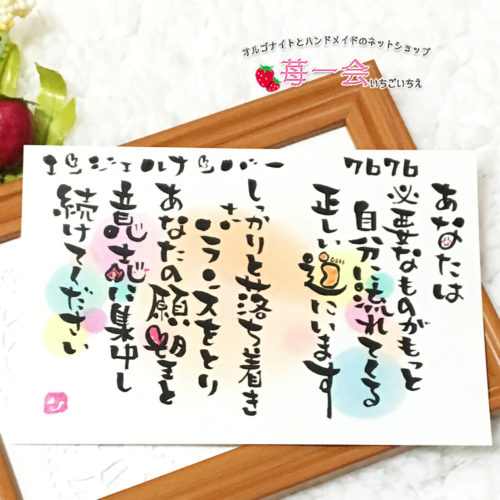 オルゴナイトとハンドメイドのネットショップ
苺一会
いちごいちえ
エンジェルナンバー 7676
あなたは
必要なものがもっと
自分に流れてくる
正しい道にいます
しっかりと落ち着き
バランスをとり
あなたの願望と
意志に集中し
続けてください